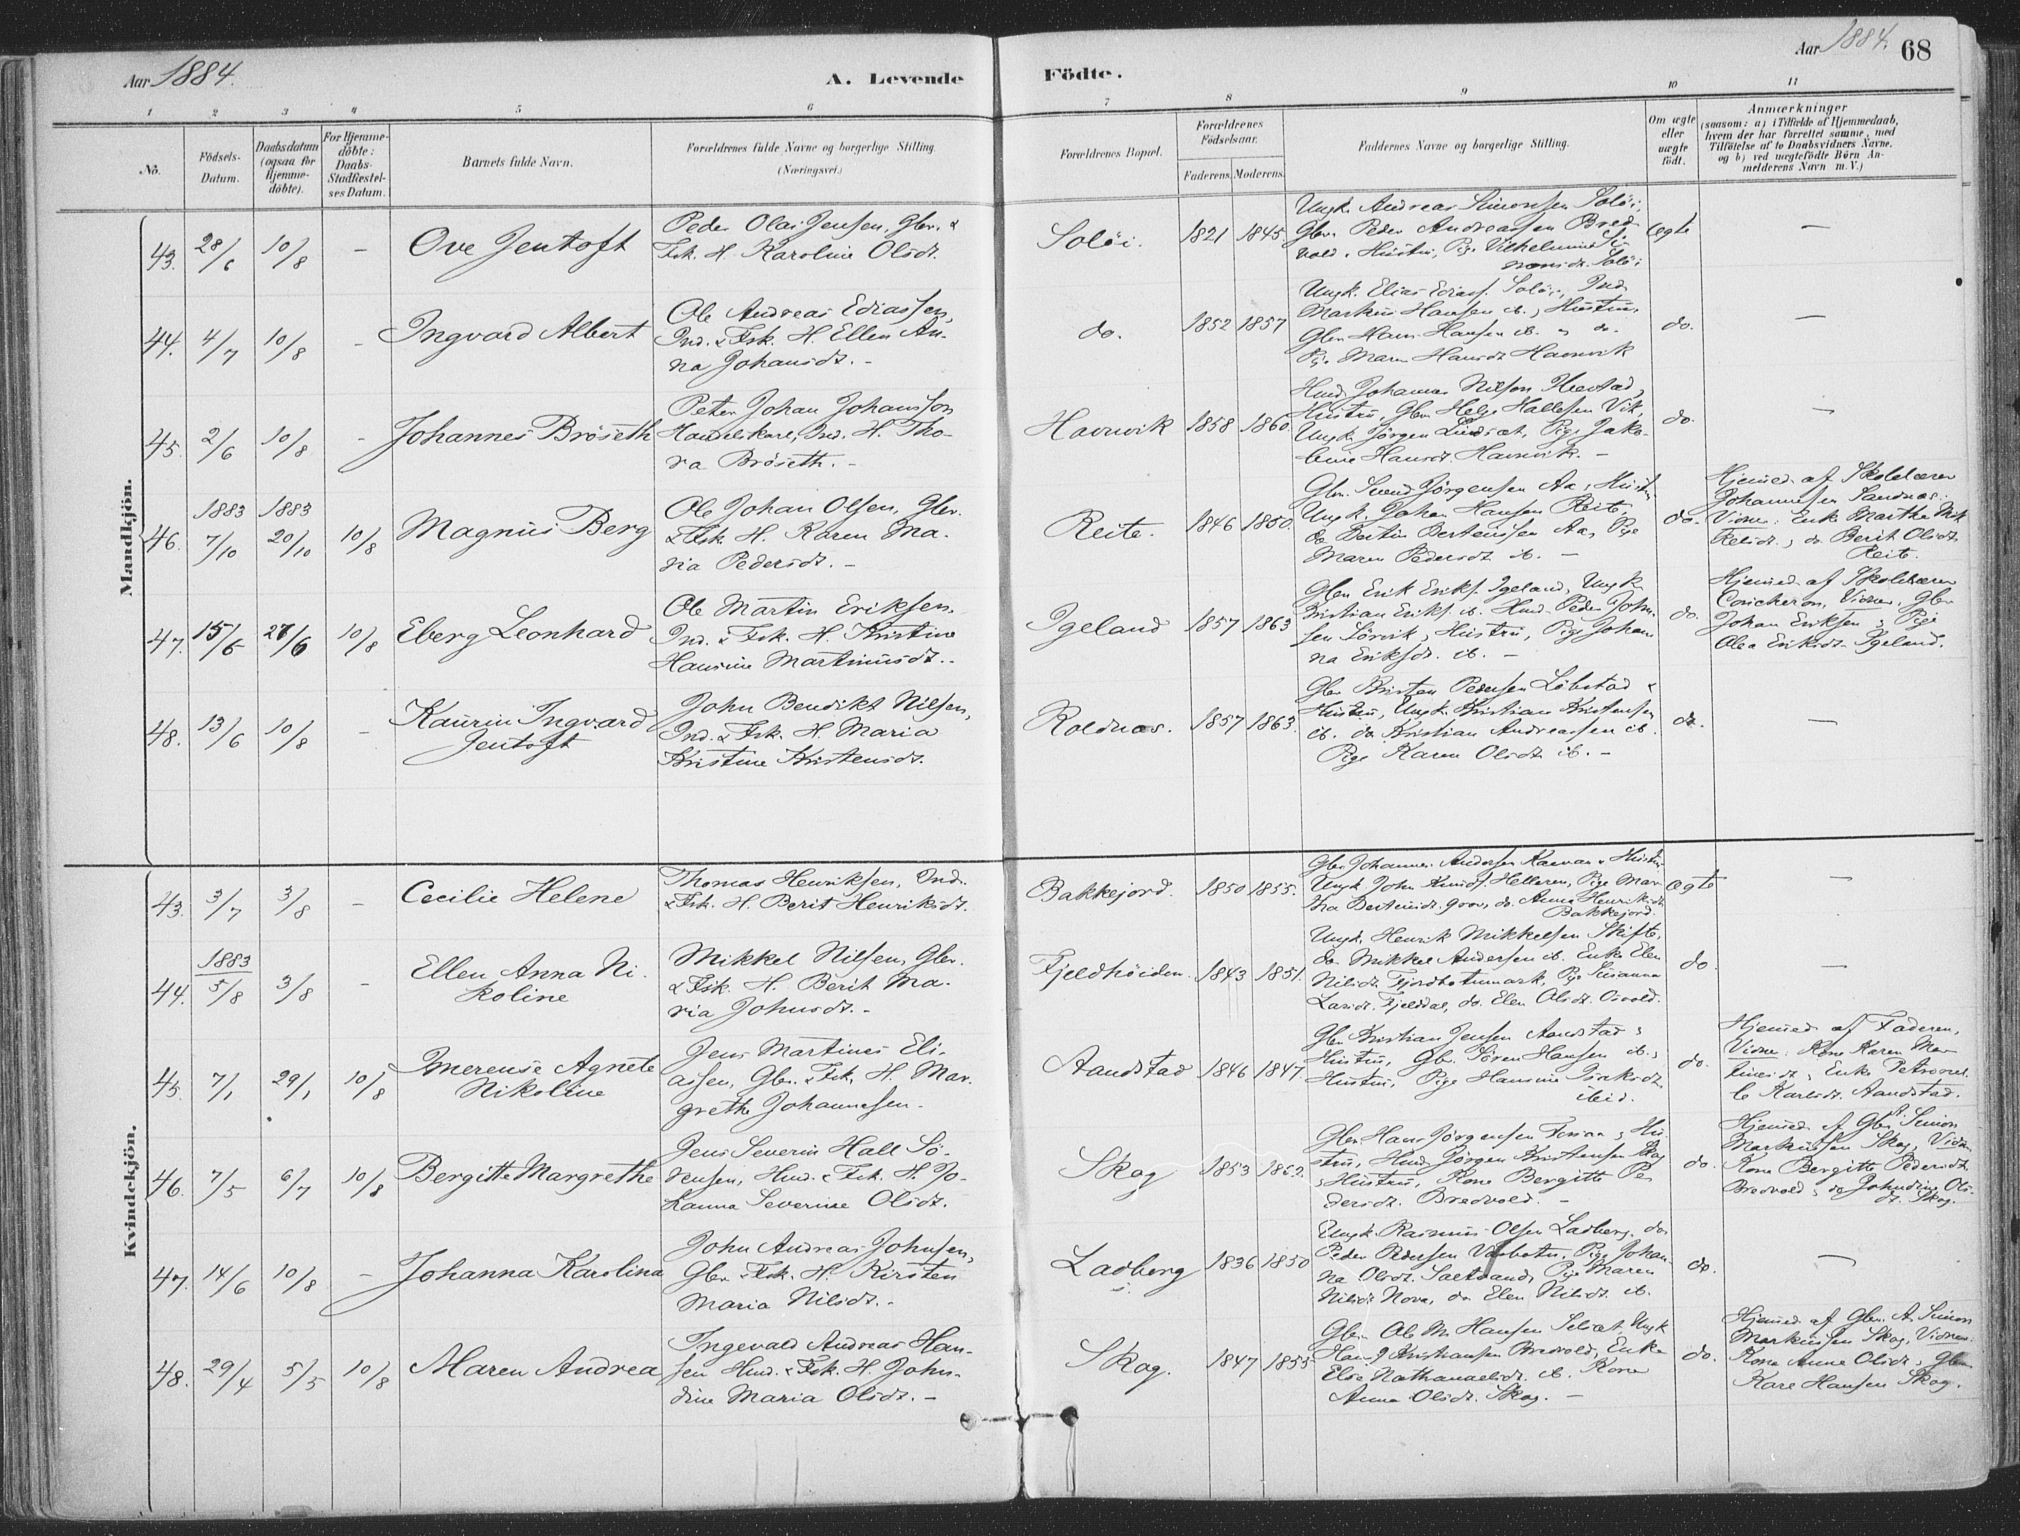 Aar 1884.
A. Levende Födte.
Aar 1884. 68
1 2 3 4 5 6 7 8 9 10 11
No.
Födsels-Datum.
Daabsdatum (ogsaa for Hjemme-döbte).
For Hjemme-döbte: Daabs-Stadfæstel-ses Datum.
Barnets fulde Navn.
Forældrenes fulde Navne og borgerlige Stilling (Næringsvei.)
Forældrenes Bopæl.
Forældrenes Födselsaar.
Faderens. Moderens.
Faddernes Navne og borgerlige Stilling.
Om ægte eller uægte født.
Anmærkninger
(saasom: a) i Tilfælde af Hjemmedaab, hvem der har forrettet samme, med Tilföielse af to Daabsvidners Navne. og b) ved uægtefödte Börn An-melderens Navn m. V.)
Mandkjön.
43. 28/6 10/8 - Ove Jentoft
Peder Olai Jensen, Gbr. &
Fsk. H. Karoline Olsdt.
Solöi. 1821 1845
Ungk. Andreas Simonsen Solöi,
Gbr. Peder Andreassen Bred-
vold & Hustru, Pige Vilhelmine Si-
monsdt. Solöi
Ægte —
44. 4/7 10/8 - Ingvard Albert
Ole Andreas Ediassen,
Ind. & Fsk. H. Ellen An-
na Johansdt. -
do. 1852 1857
Ungk. Elias Ediass. Solöi, Ind.
Markus Hansen ib. & Hustru,
Gbr. Hans Hansen ib. & do.
Pige Maren Hansdt. Havnvik
do. —
45. 2/6 10/8 - Johannes Bröseth
Peter Johan Johansson
Handelskarl, Ind. H. Tho-
ra Bröseth. -
Havnvik 1858 1860
Hmd. Johannes Nilsen
Hustru, Gbr. Helge Hallesen Vik,
Ungk. Jörgen Lindsæt, Pige Jako-
bine Hansdt. Havnvik. -
do. —
46. 1883 7/10 1883 20/10 10/8 Magnus Berg
Ole Johan Olsen, Gbr.
& Fsk. H. Karen Ma-
ria Pedersdt. -
Reite. 1846 1850.
Gbr. Svend Jörgensen Aa & Hustru
Ungk. Johan Hansen Reite,
do Bertin Bertenssen Aa, Pige
Maren Pedersdt ib. -
do.
Hjemmed. af Skolelærer
Johannesen Sandnæs.
Vidner: Enke Marthe Mik
kelsdt. & do. Berit Olsdt.
Reite.
47. 15/6 27/6 10/8 Eberg Leonhard
Ole Martin Eriksen.
Ind. & Fsk. H. Kristine
Hansine Martinusdt. -
Igeland 1857 1863
Gbr. Erik Eriks. Igeland, Ungk.
Kristian Eriks. ib. Hmd. Peder John-
sen Sörvik & Hustru, Pige Johan
na Eriksdt. ib. -
do.
Hjemmed. af Skolelærer
Vidner, Gbr.
Johan Eriksen & Pige
Olea Eriksdt. Igeland.
48. 13/6 10/8 - Kaurin Ingvard
Jentoft
John Benedikt Nilsen,
Ind. & Fsk. H. Maria
Kristine Kristensdt.
Roldnæs. 1857 1863.
Gbr. Kristen Pedersen Löbstad &
Hustru, Ungk. Kristian Kristensen
ib. do Kristian Andreassen ib.
Pige Karen Olsdt ib. -
do. —
Kvindekjön.
43. 3/7 3/8 - Cecilie Helene
Thomas Henriksen, Ind.
& Fsk. H. Berit Henriksdt.
Bakkejord. 1850 1855.
Gbr. Johannes Andersen & Hustru
Ungk. John Knuds. Helleren, Pige Mar-
tha Berteusdt. do. Anna Henriksdt
Bakkejord.
ægte —
44. 1883 5/8 3/8 - Ellen Anna Ni-
koline
Mikkel Nilsen, Gbr.
& Fsk. H. Berit Ma-
ria Johnsdt. -
Fjeldhöiden. 1843 1851.
Ungk. Henrik Mikkelsen Skifte,
do Mikkel Andersen ib. Enke Elen
Nilsdt. Fjordbotnmark, Pige Susanna
Larsdt. Fjelddal, do. Elen Olsdt. Osvold.
do —
45. 7/1 29/1 10/8 Imerense Agnete
Nikoline
Jens Martines Eli-
assen, Gbr. & Fsk. H. Mar-
grethe Johannesen.
Aandstad 1846 1847
Gbr. Kristian Jensen Aandstad &
Hustru, Gbr. Sören Hansen ib. &
Hustru, Pige Hansine Isaksdt.
ibid.
do.
Hjemmed. af Faderen,
Vidner. Kone Karen Mar-
tinsdt. & Enke Petronel-
le Karlsdt. Aandstad.
46. 7/5 6/7 10/8 Bergitte Margrethe
Jens Severin Hall Sö-
rensen, Hmd. & Fsk. H. Jo-
hanna Severine Olsdt.
Skog 1853 1862.
Gbr. Hans Jörgensen & Hu-
stru, Hmd. Jörgen Kristensen Skog
& Hustru, Kone Bergitte Pe-
dersdt. Bredvold. -
do.
Hjemmed. af Gbr. A. Simon
Markussen Skog, Vidn.
Kone Bergitte Pedersdt.
Bredvold & do Johndine Ols-
dt. Skog.
47. 14/6 10/8 - Johanna Karolina
John Andreas Johnsen,
Gbr. & Fsk. H. Kirsten
Maria Nilsdt. -
Ladberg 1836 1850
Ungk. Rasmus Olsen Ladberg, do
Peder Pedersen Pige Johan-
na Olsdt. Saltvand, Pige Maren
Nilsdt Nova, do Elen Nilsdt. ib.
do. —
48. 29/4 5/5 10/8 Maren Andrea
Ingevald Andreas Han-
sen Hmd. & Fsk. H. John-
dine Maria Olsdt. -
Skog. 1847 1855
Gbr. Ole M. Hansen Selsæt, Ungk
Hans J. Kristiansen Bredvold, Enke
Else Nathanaelsdt. ib. Kone
Anna Olsdt. Skog. -
do.
Hjemmed. af Gbr. A. Simon
Markussen Skog, Vidner.
Kone Anne Olsdt. & Gbr.
Karl Hansen Skog.